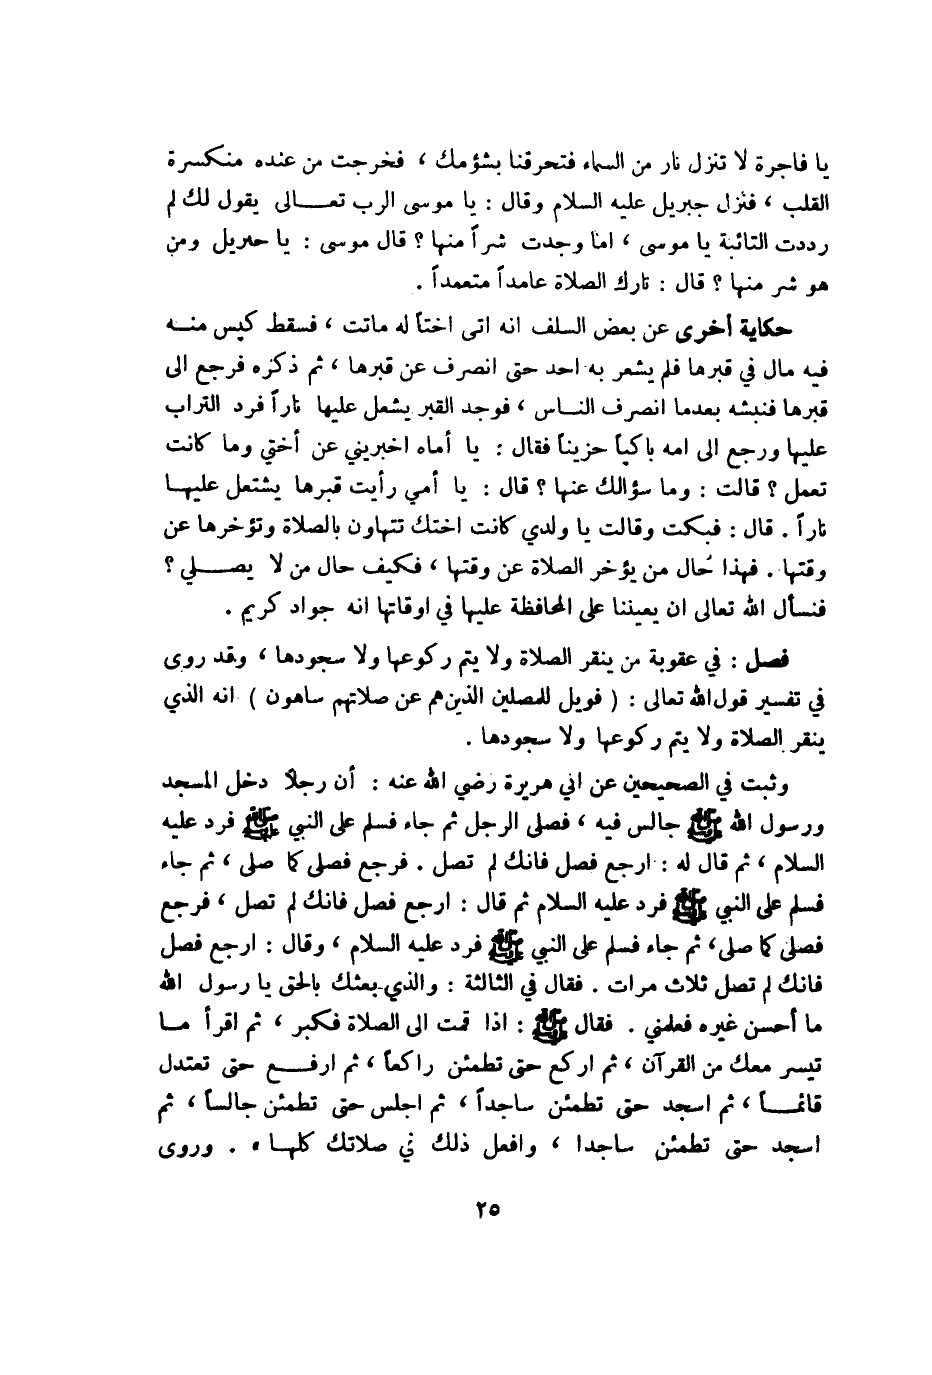 يا فاجرة لا تنزل نار من السماء فتحرقنا بشؤمك ، فخرجت من عنده منكسرة
القلب ، فنزل جبريل عليه السلام وقال : يا موسى الرب تعـــالى يقول لك لم
رددت التائبة يا موسى ، اما وجدت شراً منها ؟ قال موسى : يا جبريل ومن
هو شر منها ؟ قال : تارك الصلاة عامداً متعمداً .
حكاية أخرى عن بعض السلف انه اتى اختاً له ماتت ، فسقط كيس منـــه
فيه مال في قبرها فلم يشعر به احد حتى انصرف عن قبرها ، ثم ذكره فرجع الى
قبرها فنبشه بعدما انصرف النـاس ، فوجد القبر يشعل عليها ناراً فرد التراب
عليها ورجع الى امه باكياً حزيناً فقال : يا أماه اخبريني عن أختي وما كانت
تعمل ؟ قالت : وما سؤالك عنها ؟ قال : يا أمي رأيت قبرها يشتعل عليهـا
ناراً . قال : فبكت وقالت يا ولدي كانت اختك تتهاون بالصلاة وتؤخرها عن
وقتها . فهذا حال من يؤخر الصلاة عن وقتها ، فكيف حال من لا يصـــلي ؟
فنسأل الله تعالى ان يعيننا على المحافظة عليها في اوقاتها انه جواد كريم .
فصل : في عقوبة من ينقر الصلاة ولا يتم ركوعها ولا سجودها ، وقد روى
في تفسير قول الله تعالى : ( فويل للمصلين الذين هم عن صلاتهم ساهون ) انه الذي
ينقر الصلاة ولا يتم ركوعها ولا سجودها .
وثبت في الصحيحين عن ابي هريرة رضي الله عنه : أن رجلاً دخل المسجد
ورسول الله ﷺ جالس فيه ، فصلى الرجل ثم جاء فسلم على النبي ﷺ فرد عليه
السلام ، ثم قال له : ارجع فصل فانك لم تصل . فرجع فصلى كما صلى ، ثم جاء
فسلم على النبي ﷺ فرد عليه السلام ثم قال : ارجع فصل فانك لم تصل ، فرجع
فصلى كما صلى، ثم جاء فسلم على النبي ﷺ فرد عليه السلام ، وقال : ارجع فصل
فانك لم تصل ثلاث مرات . فقال في الثالثة : والذي بعثك بالحق يا رسول الله
ما أحسن غيره فعلمني . فقال ﷺ : اذا قمت الى الصلاة فكبر ، ثم اقرأ مـا
تيسر معك من القرآن ، ثم اركع حتى تطمئن راكعاً ، ثم ارفـــع حتى تعتدل
قائمـــاً ، ثم اسجد حتى تطمئن ساجداً ، ثم اجلس حتى تطمئن جالساً ، ثم
اسجد حتى تطمئن ساجدا ، وافعل ذلك في صلاتك كلهـا » . وروى
٢٥